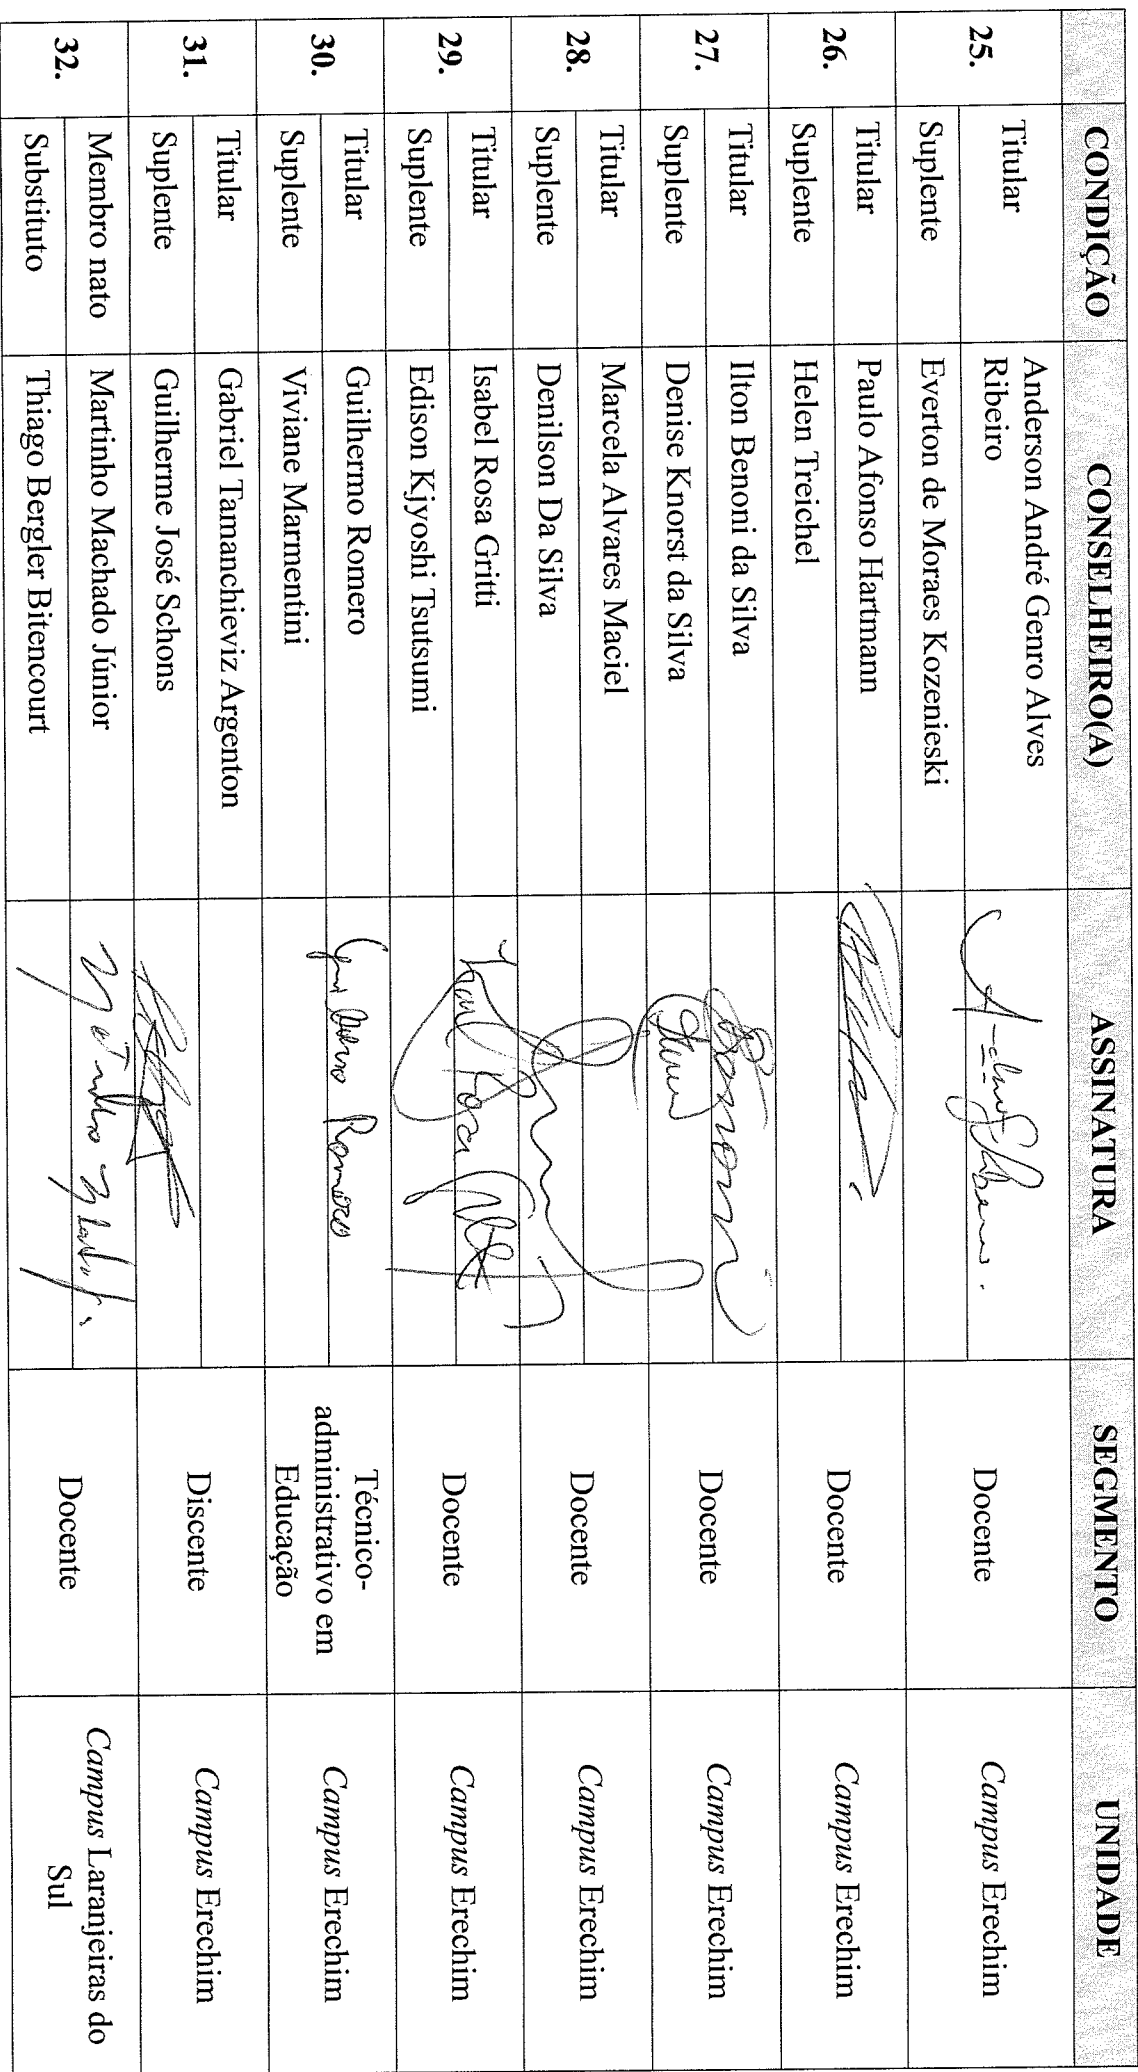 CONDIÇÃO CONSELHEIRO(A) ASSINATURA SEGMENTO UNIDADE
25. Titular Anderson André Genro Alves Ribeiro Docente Campus Erechim
Suplente Everton de Moraes Kozenieski
26. Titular Paulo Afonso Hartmann Docente Campus Erechim
Suplente Helen Treichel
27. Titular Ilton Benoni da Silva Benoni Docente Campus Erechim
Suplente Denise Knorst da Silva
28. Titular Marcela Alvares Maciel Docente Campus Erechim
Suplente Denilson Da Silva
29. Titular Isabel Rosa Gritti Isabel Rosa Gritti Docente Campus Erechim
Suplente Edison Kjyoshi Tsutsumi
30. Titular Guilhermo Romero Guilhermo Romero Técnico-administrativo em Educação Campus Erechim
Suplente Viviane Marmentini
31. Titular Gabriel Tamanchieviz Argenton Discente Campus Erechim
Suplente Guilherme José Schons
32. Membro nato Martinho Machado Júnior Docente Campus Laranjeiras do Sul
Substituto Thiago Bergler Bitencourt